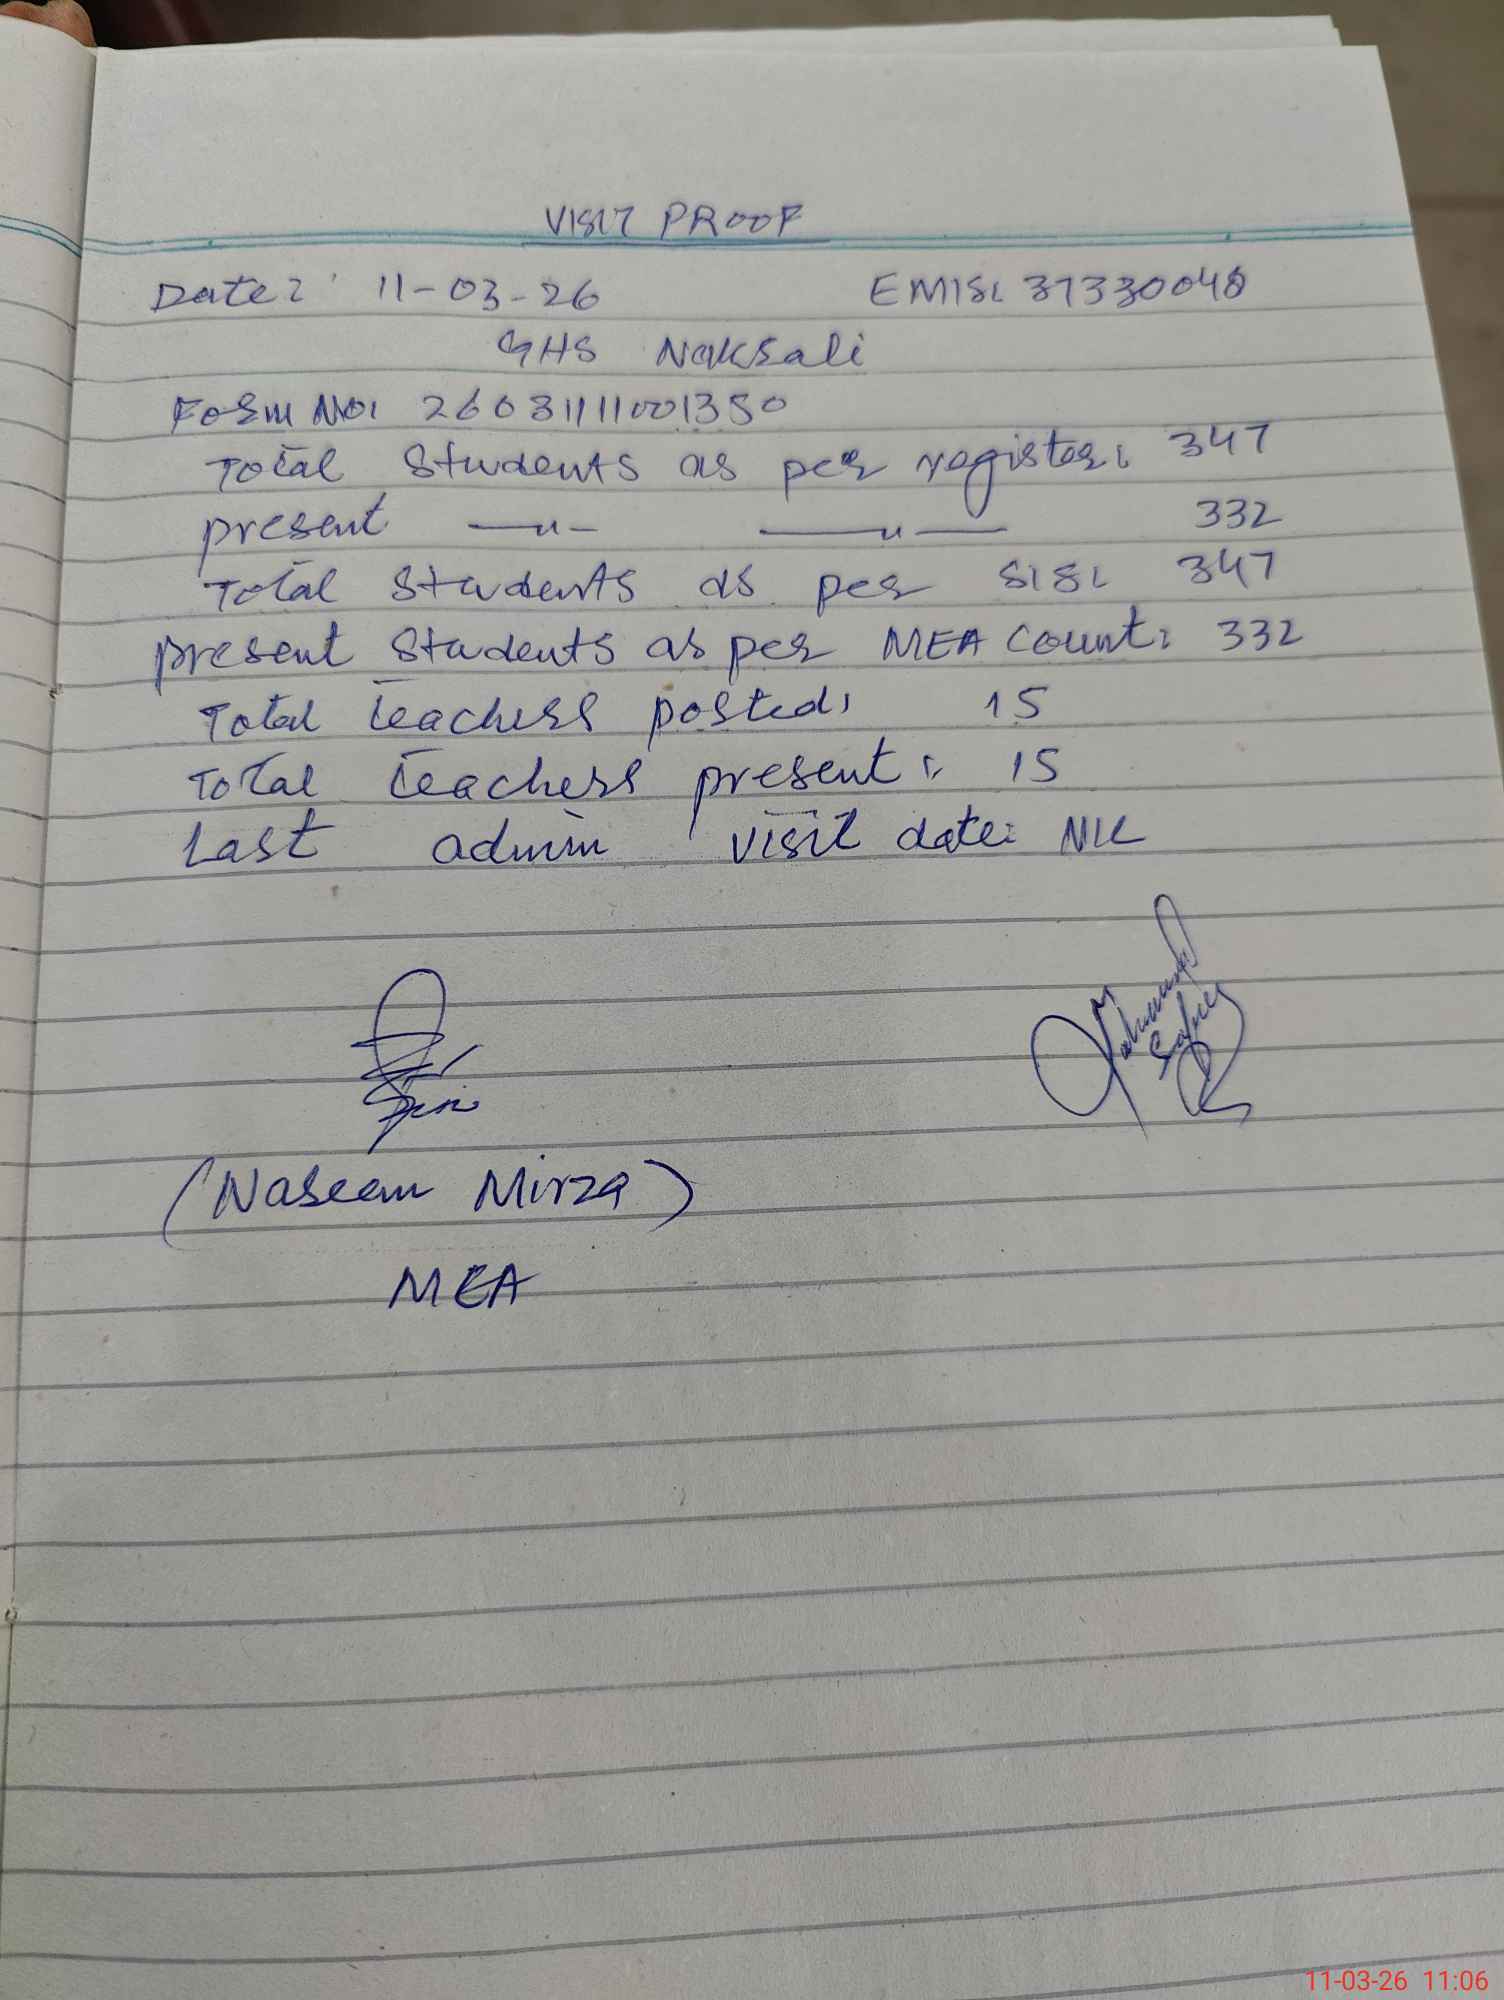 VISIT PROOF
Date: 11-03-26 EMIS: 37330048
GHS Naksali
Form No: 26031111001350
Total Students as per register: 347
present —"— —"— 332
Total Students as per SIS: 347
present Students as per MEA count: 332
Total teachers posted: 15
Total teachers present: 15
Last admin visit date: NIL
(Naseem Mirza)
MEA
11-03-26 11:06